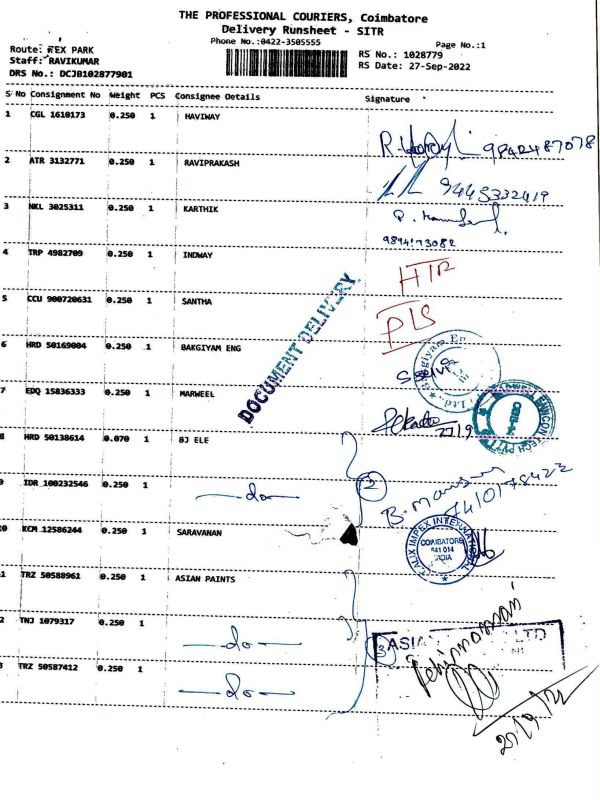 THE PROFESSIONAL COURIERS, Coimbatore
Delivery Runsheet - SITR
Phone No.:0422-3505555
Page No.:1
Route: REX PARK
Staff: RAVIKUMAR
DRS No.: DCJB102877901
RS No.: 1028779
RS Date: 27-Sep-2022
S No Consignment No Weight PCS Consignee Details Signature
1 CGL 1610173 0.250 1 HAVIWAY
9842487078
2 ATR 3132771 0.250 1 RAVIPRAKASH
9445332419
3 NKL 3025311 0.250 1 KARTHIK
9894173082
4 TRP 4982709 0.250 1 INDWAY
HTR
5 CCU 900720631 0.250 1 SANTHA
PLS
DOCUMENT DELIVERY
6 HRD 50169004 0.250 1 BAKGIYAM ENG
S. Selvi
7 EDQ 15836333 0.250 1 MARWEEL
27/9
8 HRD 50138614 0.070 1 BJ ELE
2
9 IDR 100232546 0.250 1 -do-
7410178422
10 KCM 12586244 0.250 1 SARAVANAN
AUX IMPEX INTERNATIONAL
COIMBATORE
641 014
INDIA
1 TRZ 50588961 0.250 1 ASIAN PAINTS
2 TNJ 1079317 0.250 1 -do-
3
ASIA LTD
3 TRZ 50587412 0.250 1 -do-
27/9/22